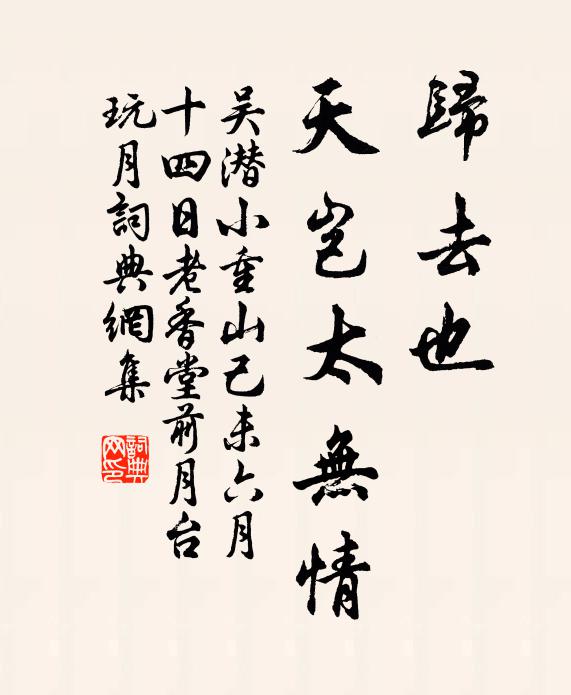 歸去也
天岂太無情
吴潜小重山己未六月
十四日老香堂前月台
玩月詞典網集
詞典网印